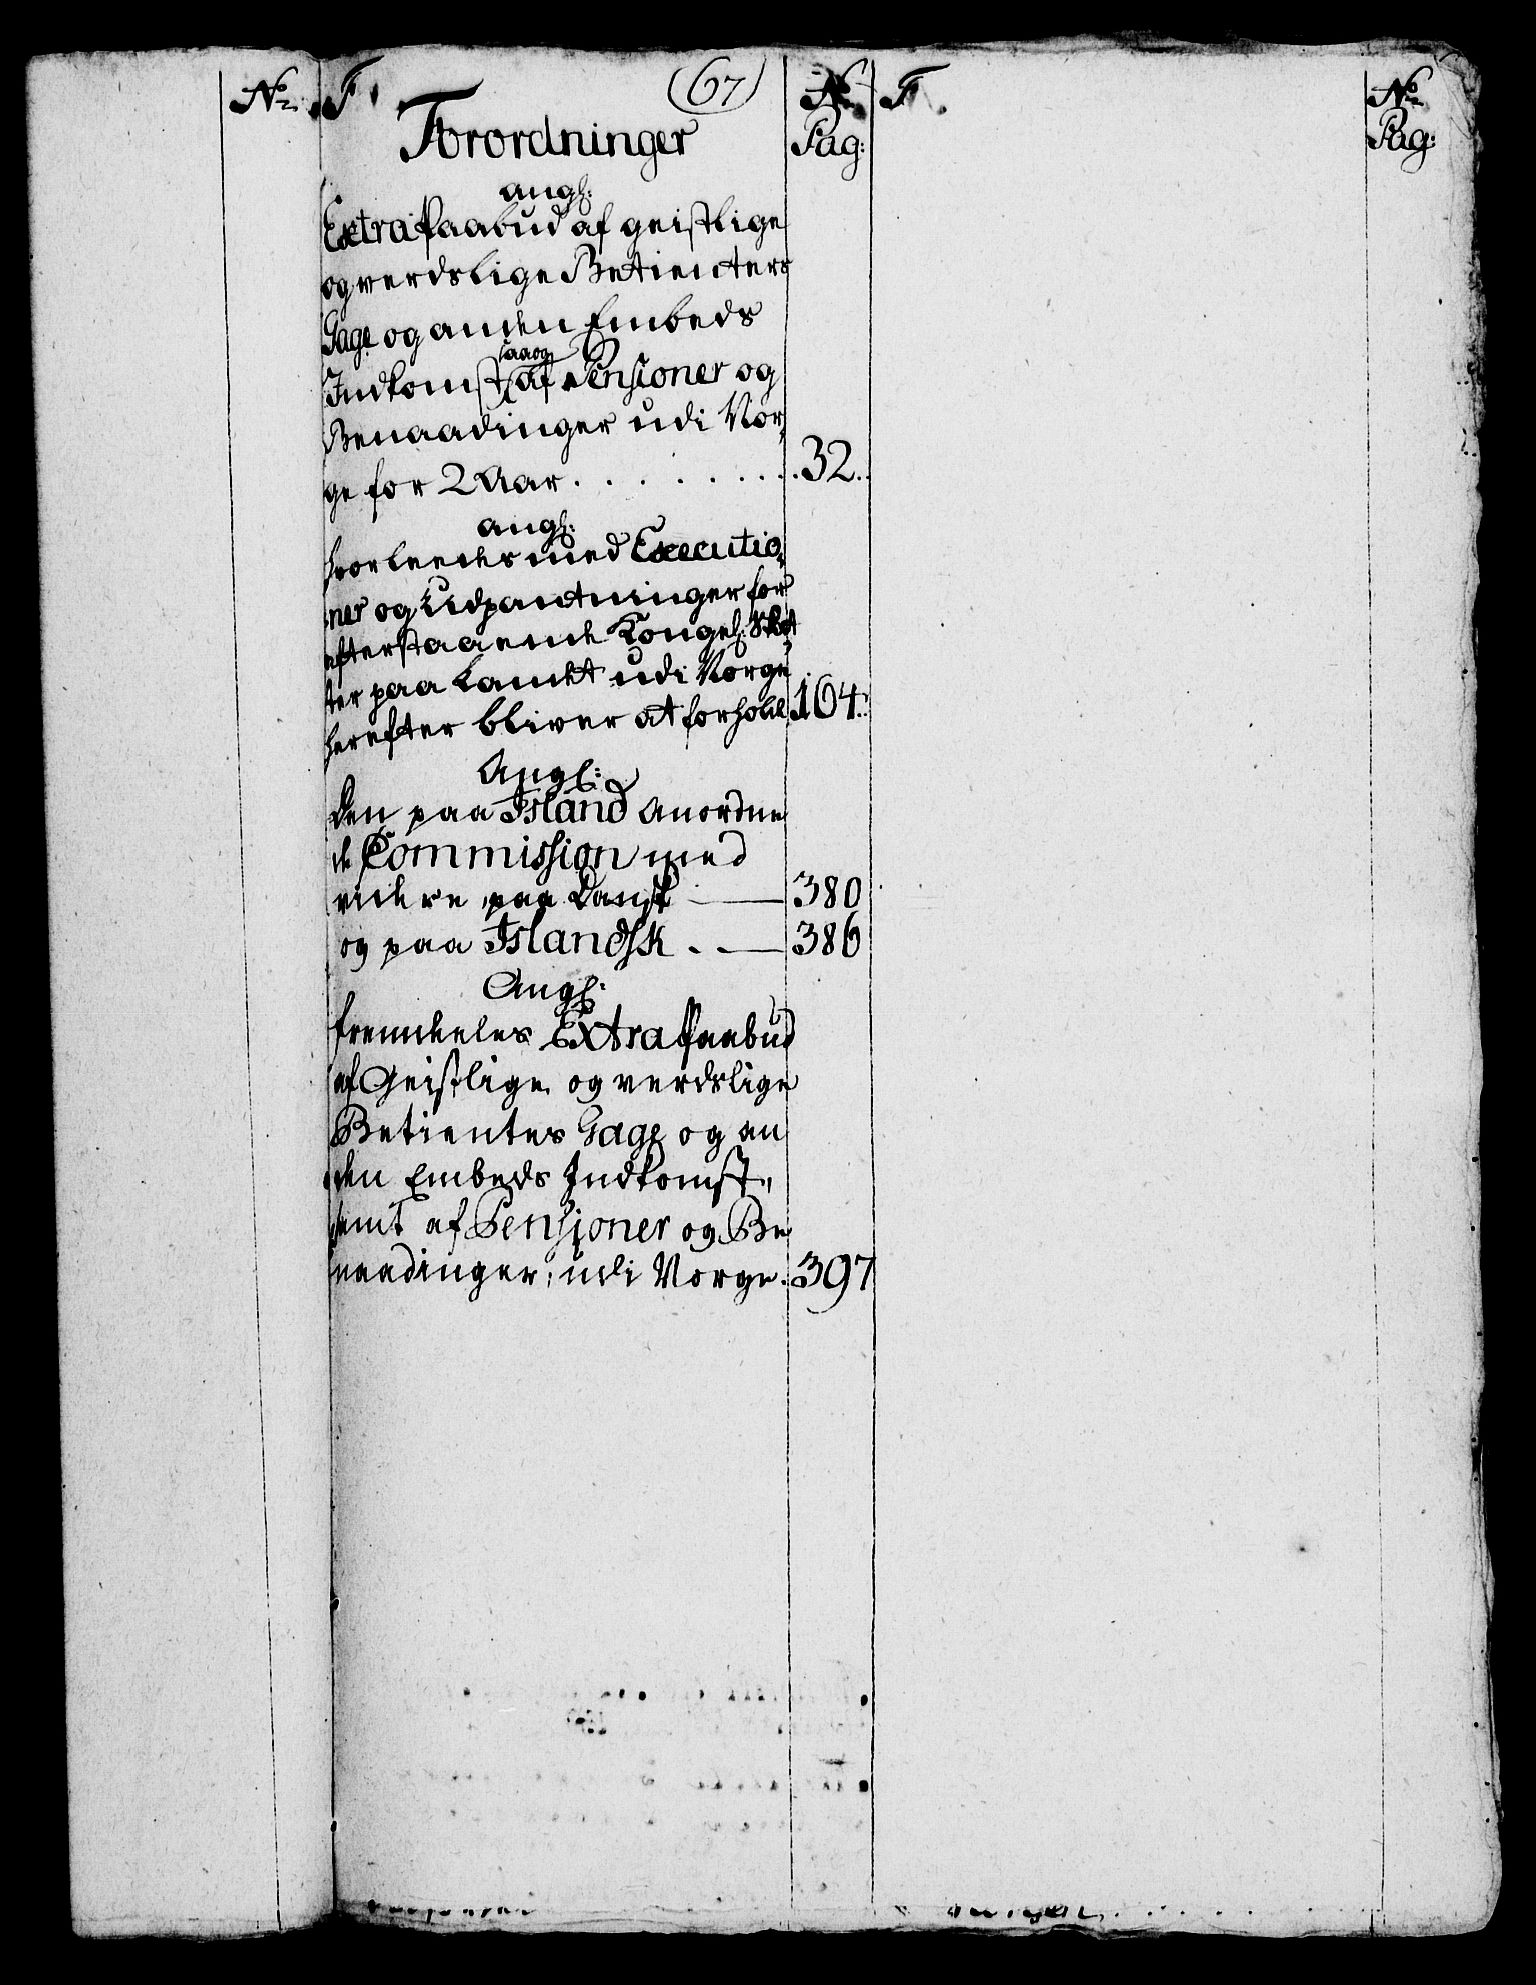 No
F
(67)
No
F
No
Forordninger
Pag:
Pag:
angl:
Extra Paabud af geistlige
og verdslige Betienters
Gage og anden Embeds
saa og
Indkomst af Pensioner og
Benaadinger udi Nor,,
ge for 2 Aar . . . . . . . . . 32..
angl:
hvorleedes med Executio,,
ner og Udpantninger for
efterstaaende Kongel: Skat
ter paa Landet udi Norge
herefter bliver at forhold 164.
Angl:
den paa Island anordne
de Commission med
videre, paa Dansk — 380
og paa Islandsk . — 386
Angl:
fremdeles Extra Paabud
af Geistlige og verdslige
Betientes Gage og an
den Embeds Indkomst,
samt af Pensioner og Be
naadinger, udi Norge. 397